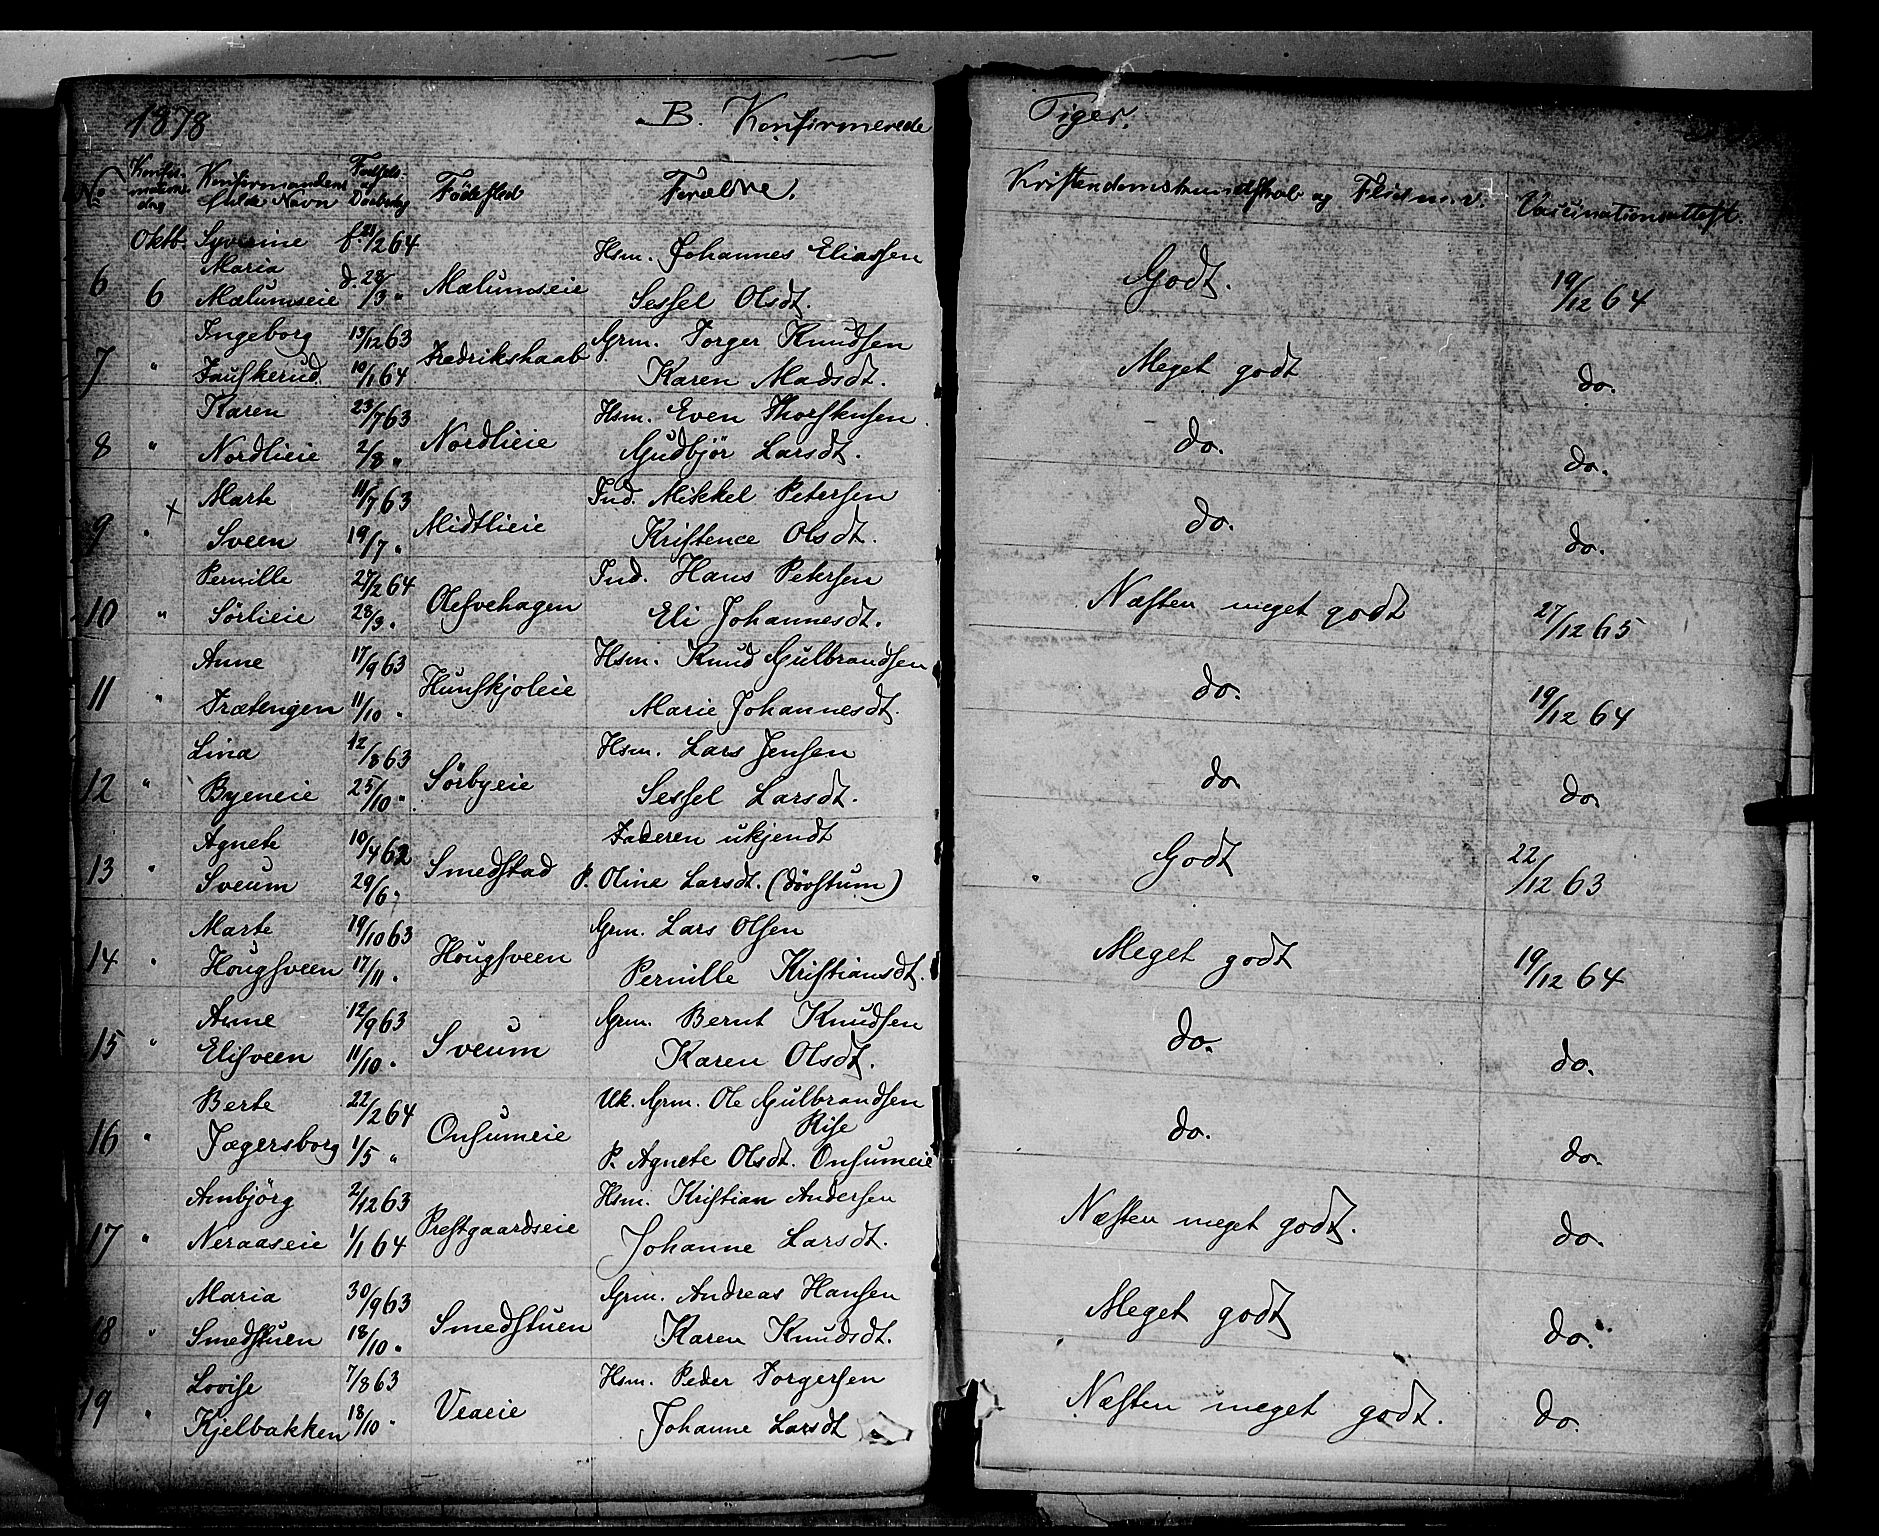 1878 B. Konfirmerede Piger.
No Konfirmations dag Konfirmandens fulde Navn Fødsels og Daabsdag Födested Forældre. Kristendomskundskab og Flid m. v. Vaccinationsattest.
Oktb. Syverine f. 21/2 64 Hsm. Johannes Eliassen
Maria Godt.
6 6 Mælumseie d. 28/3 " Mælumseie Sessel Olsdt. 19/12 64
Ingeborg 13/12 63 Grm. Torger Knudsen
7 " Fauskerud 10/1 64 Fredrikshaab Karen Madsdt. Meget godt do.
Karen 23/7 63 Hsm. Even Thorstensen
8 " Nordlieie 2/8 " Nordlieie Gudbjør Larsdt. do. do.
Marte 11/7 63 Ind. Mikkel Petersen
9 " x Sveen 19/7 " Midtlieie Kristence Olsdt. do. do.
Pernille 27/2 64 Ind. Hans Petersen
10 " Sörlieie 28/3 " Olesvehagen Eli Johannesdt. Næsten meget godt 27/12 65
Anne 17/9 63 Hsm. Knud Gulbrandsen
11 " Trætengen 11/10 " Hunskjoleie Marie Johannesdt. do. 19/12 64
Lina 12/8 63 Hsm. Lars Jensen
12 " Byeneie 25/10 " Sörbyeie Sessel Larsdt. do. do.
Agnete 10/4 62 Faderen ukjendt
13 " Sveum 29/6 " Smedstad P. Oline Larsdt. (døvstum) Godt 22/12 63
Marte 19/10 63 Grm. Lars Olsen
14 " Hougsveen 17/11 " Hougsveen Pernille Kristiansdt. Meget godt 19/12 64
Anne 12/9 63 Grm. Bernt Knudsen
15 " Elisveen 11/10 " Sveum Karen Olsdt. do. do.
Berte 22/2 64 Uk. Grm. Ole Gulbrandsen
Rise
16 " Jægersborg 1/5 " Onsumeie P. Agnete Olsdt. Onsumeie do. do.
Anbjörg 2/12 63 Hsm. Kristian Andersen
17 " Neraaseie 1/1 64 Prestgaardseie Johanne Larsdt. Næsten meget godt. do.
Maria 30/9 63 Grm. Andreas Hansen
18 " Smedstuen 18/10 " Smedstuen Karen Knudsdt. Meget godt do.
Lovise 7/8 63 Hsm. Peder Torgersen
19 " Kjelbakken 18/10 " Veaeie Johanne Larsdt Næsten meget godt. do.